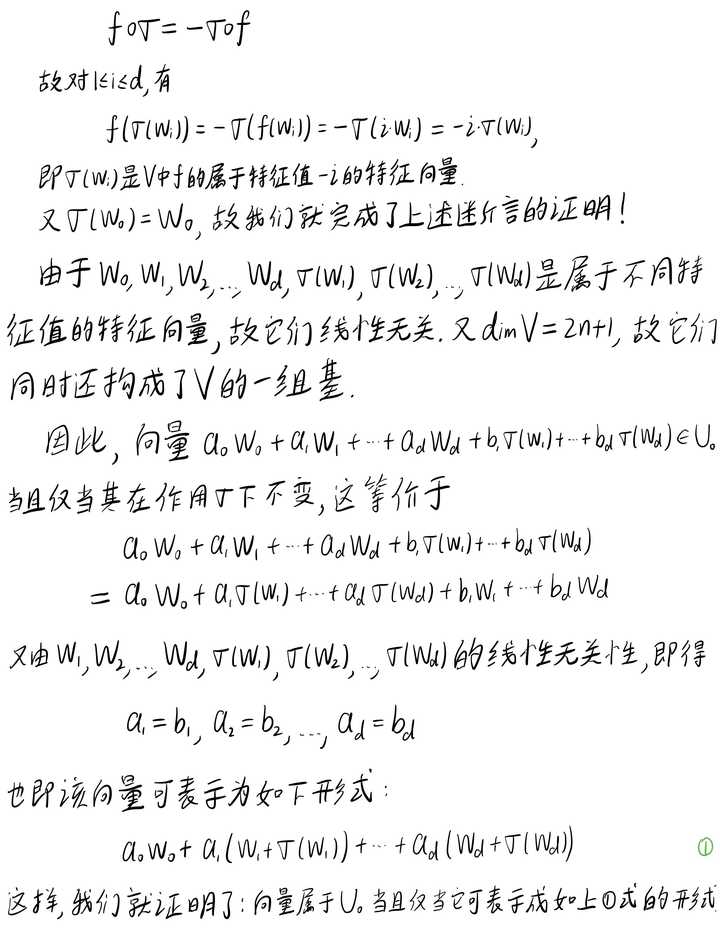 f∘σ = -σ∘f
故对1≤i≤d,有
f(σ(w_i)) = -σ(f(w_i)) = -σ(i·w_i) = -i·σ(w_i),
即σ(w_i)是V中f的属于特征值-i的特征向量.
又σ(w_0)=w_0,故我们就完成了上述断言的证明!
由于w_0,w_1,w_2,...,w_d,σ(w_1),σ(w_2),...,σ(w_d)是属于不同特
征值的特征向量,故它们线性无关.又dimV=2n+1,故它们
同时还构成了V的一组基.
因此,向量a_0w_0+a_1w_1+…+a_dw_d+b_1σ(w_1)+…+b_dσ(w_d)∈U_0
当且仅当其在作用σ下不变,这等价于
a_0w_0+a_1w_1+…+a_dw_d+b_1σ(w_1)+…+b_dσ(w_d)
= a_0w_0+a_1σ(w_1)+…+a_dσ(w_d)+b_1w_1+…+b_dw_d
又由w_1,w_2,...,w_d,σ(w_1),σ(w_2),...,σ(w_d)的线性无关性,即得
a_1=b_1, a_2=b_2, ..., a_d=b_d
也即该向量可表示为如下形式:
a_0w_0+a_1(w_1+σ(w_1))+…+a_d(w_d+σ(w_d)) ①
这样,我们就证明了:向量属于U_0当且仅当它可表示成如上①式的形式